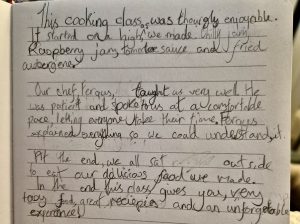 This cooking class was thoughly enjoyable.
It started on a high as we made chilly jam,
Raspberry jam, tomatoe sauce and fried
aubergene.
Our chef, Fergus, taught as very well. He
was patient and spoke to us at a comfortable
pace, letting everyone take their time. Fergus
explained everything so we could understand it.
At the end, we all sat outside
to eat our dalicious food we made.
In the end this class gives you, very
tasy food, great reciepies and an unforgetable
experience!